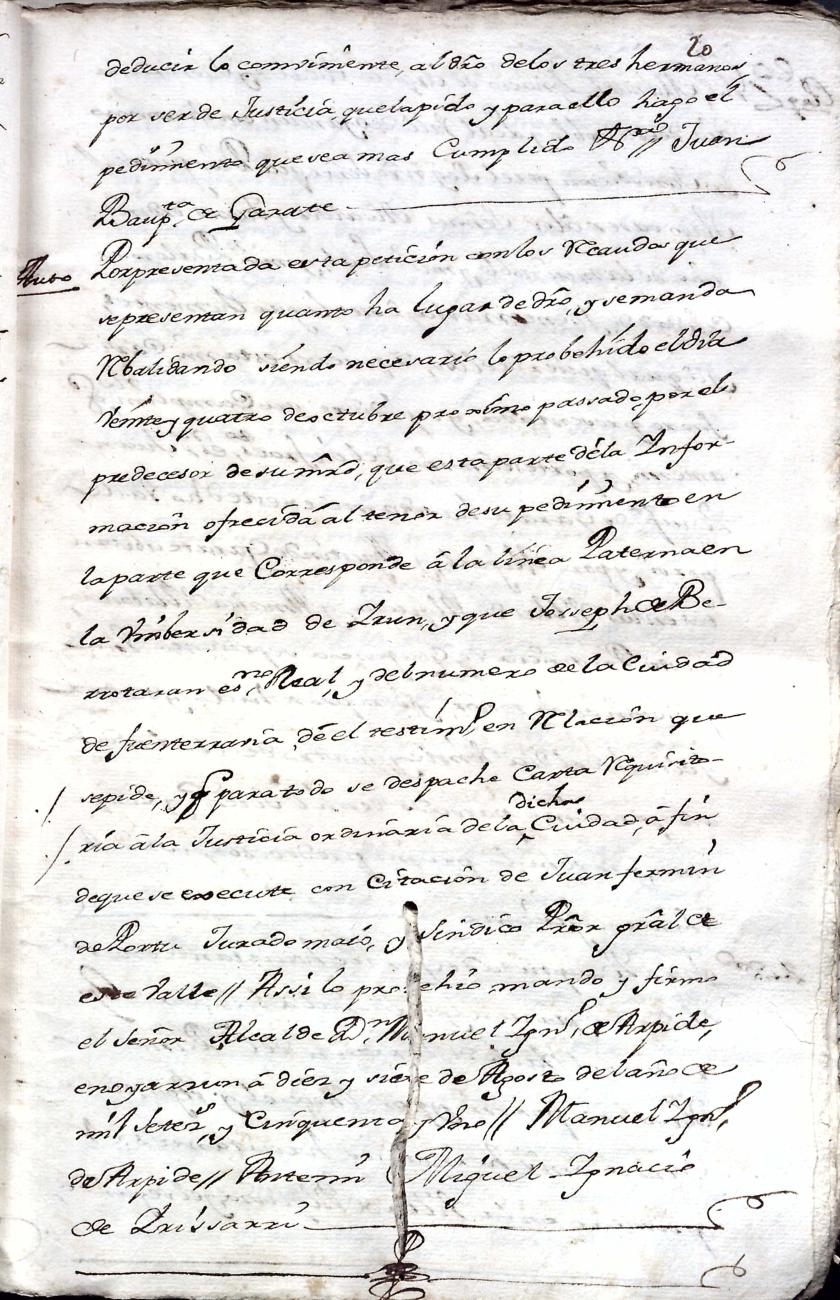 20
deducir lo combiniente, al dr̃o delos tres hermanos
por ser de Justicia, quela pido y para ello hago el
pedimento que sea mas Cumplido // Juan
Baupta. de Garate
Auto
Por presentada esta petizion con los Recaudos que
se presentan quanto ha lugar de dr̃o, y se manda
Rbalidando siendo necesario lo probehido el dia
veinte y quatro de octubre proximo passado, por el
predecesor de su mrd, que esta parte dé la Infor-
macion ofrecida al tenor desu pedimento en
la parte que Corresponde â la linea Paterna en
la Vnibersidad de Irun, y que Joseph de Be-
rrotaran esno. Real, y del numero de la Ciudad
de fuenterravia dé el testimo. en Relacion que
se pide, y q para todo se despache Carta Requisito-
ria â la Justicia ordinaria dela dicha Ciudad, â fin
de que se execute con Citacion de Juan fermin
de Portu Jurado maior, y Sindico Prõr grãl de
este Valle // Assi lo probehio mando y firmo
el señor Alcalde Dn. Manuel Igno. de Arpide,
en oyarzun â diez y siete de Agosto del año de
mil setezs. y Cinquenta y Vno // Manuel Igno.
de Arpide // Antemi Miguel Ignacio
de Irissarri